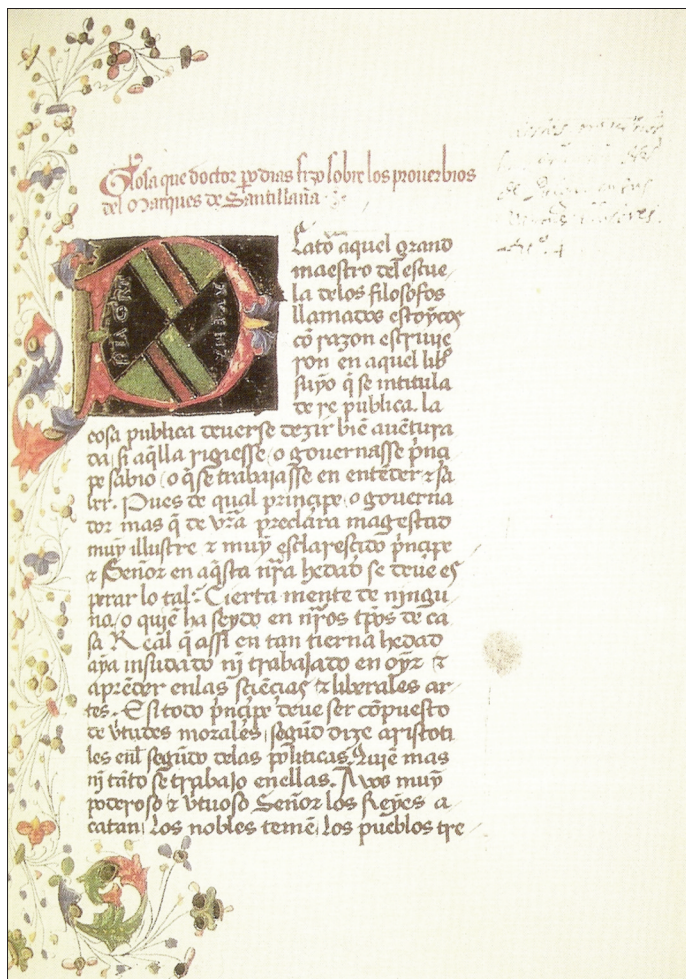 Glosa que doctor po dias fizo sobre los prouerbios
del Marques de Santillana
Lato aquel grand
maestro del escue
la delos filosofos
llamados estoycos
cõ razon escriuie
ron en aquel libro
suyo q̃ se intitula
de re publica. la
AVE MA
cosa publica deuerse dezir biẽ auẽtura
da, si aq̃lla rigiesse, o gouernasse pñci
pe sabio, o q̃ se trabajasse en entẽder & sa
ber. Pues de qual principe, o gouerna
dor mas q̃ de vr̃a preclara magestad
muy illustre & muy esclarescido pñcipe
& Señor en aq̃sta nr̃a hedad se deue es
perar lo tal: Cierta mente de ningu
no, o quiẽ ha seydo en nr̃os tp̃os de ca
sa Real q̃ assi en tan tierna hedad
aya insudado nj trabajado en oyr &
aprẽder enlas sciẽcias & liberales ar
tes. E si todo pñcipe deue ser cõpuesto
de v̉tudes morales, segũd dize aristoti
les enl segũdo delas politicas, Quiẽ mas
nj tãto se trabajo enellas. A vos muy
poderoso & v̉tuoso Señor los Reyes a
catan, Los nobles temẽ, Los pueblos tre